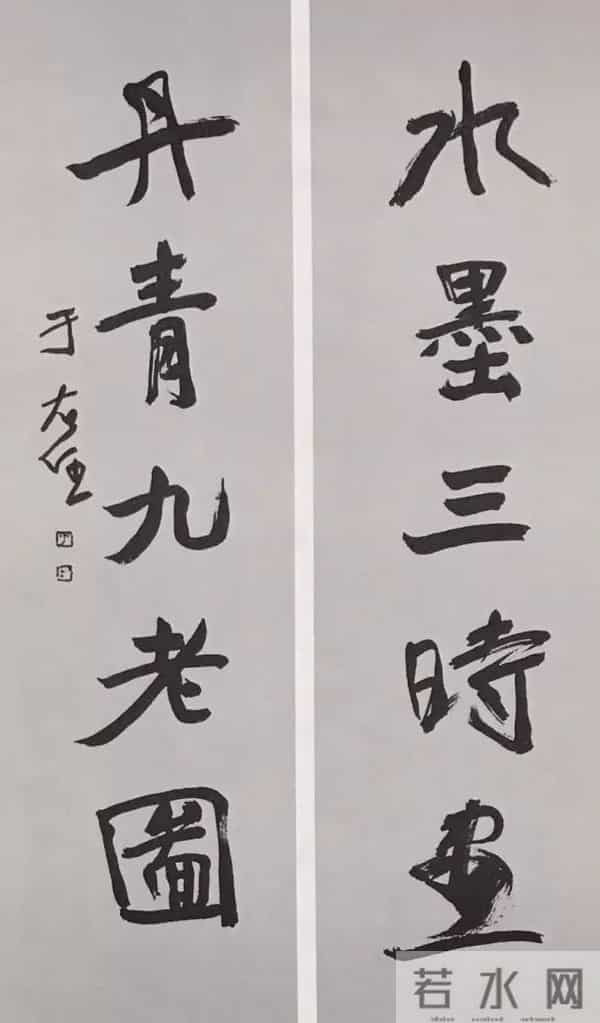 水墨三時畫
丹青九老圖
于右任
若水网